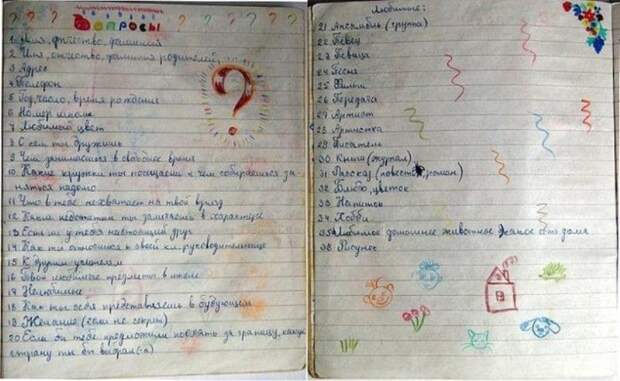 Вопросы
1 Имя, отчество, фамилия
2 Имя, отчество, фамилия родителей
3 Адрес
4 Телефон
5 Год, число, время рождения
6 Номер школы
7 Любимый цвет
8 С кем ты дружишь
9 Чем занимаешься в свободное время
10 Какие кружки ты посещаешь и чем собираешься за-
няться надолго
11 Что в тебе нехватает на твой взгляд
12 Какие недостатки ты замечаешь в характере
13 Есть ли у тебя настоящий друг
14 Как ты относишься к своей кл. руководительнице
15 К другим учителям
16 Твои любимые предметы в школе
17 Нелюбимые
18 Как ты себя представляешь в будующем
19 Желание (если не секрет)
20 Если бы тебе предложили поехать за границу, какую
страну ты бы выбрал(-а)
?
Любимые:
21 Ансамбль (группа)
22 Певец
23 Певица
24 Песня
25 Фильм
26 Передача
27 Артист
28 Артистка
29 Писатель
30 Книга (журнал)
31 Рассказ (повесть, роман)
32 Блюдо, цветок
33 Напиток
34 Хобби
35 Любимое домашнее животное
36 Рисунок